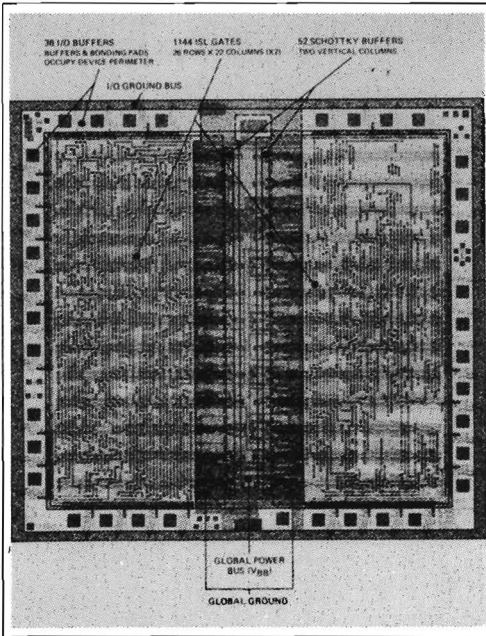 36 I/O BUFFERS
BUFFERS & BONDING PADS
OCCUPY DEVICE PERIMETER
1144 ISL GATES
26 ROWS X 22 COLUMNS (X2)
52 SCHOTTKY BUFFERS
TWO VERTICAL COLUMNS
I/O GROUND BUS
GLOBAL POWER
BUS (VBB)
GLOBAL GROUND